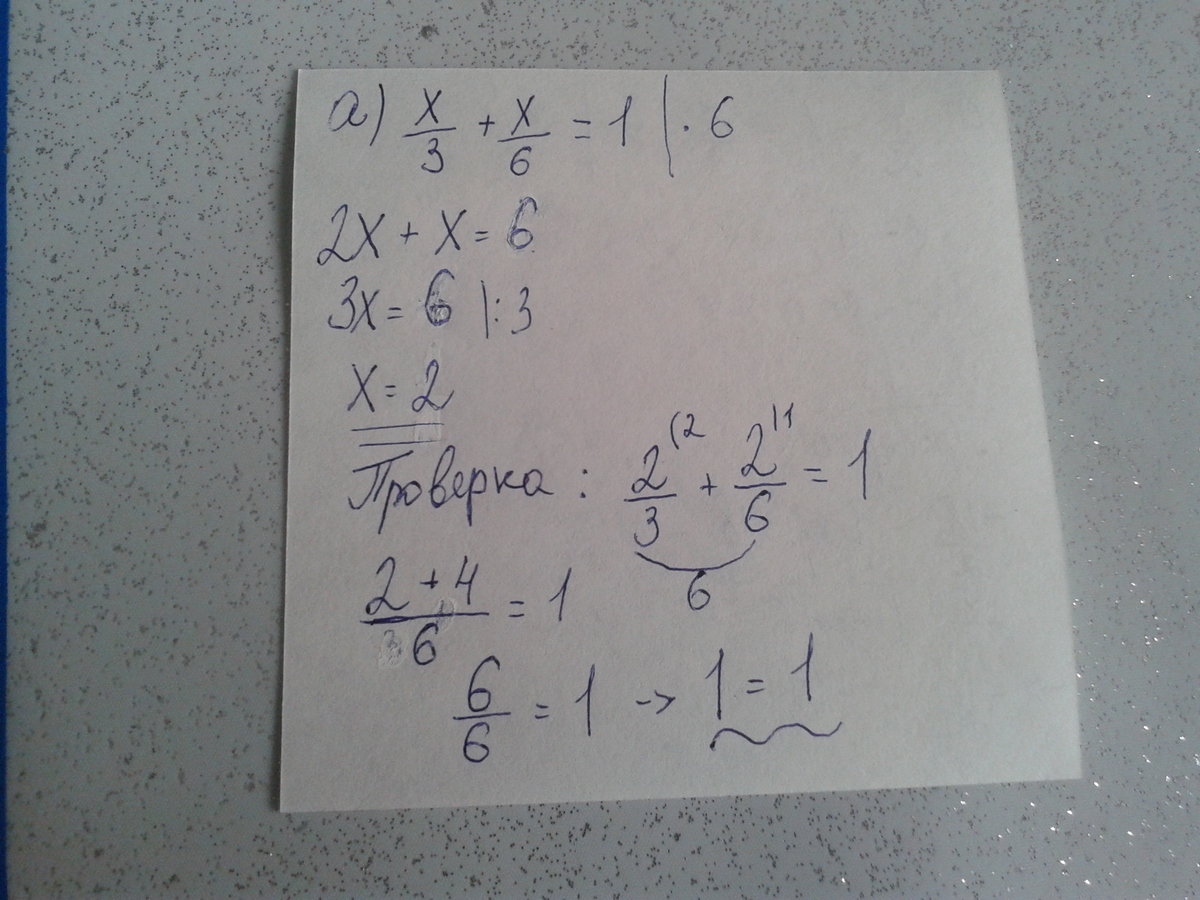 а) x/3 + x/6 = 1 | · 6
2x + x = 6
3x = 6 |: 3
x = 2
Проверка : 2(2/3 + 2)1/6 = 1
6
2 + 4/6 = 1
6/6 = 1 → 1 = 1